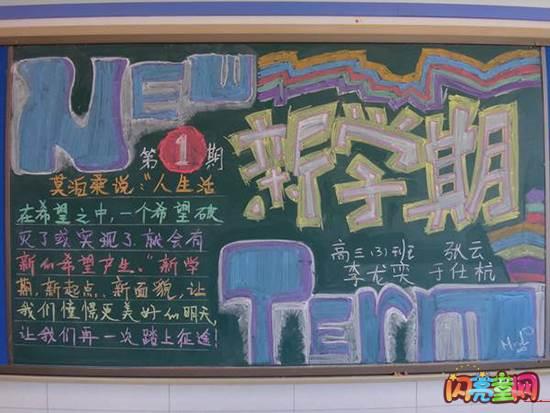 NEW
第1期
新学期
莫泊桑说:"人生活
在希望之中,一个希望破
灭了或实现了就会有
新的希望产生。"新学
期,新起点,新面貌,让
我们憧憬更美好的明天
让我们再一次踏上征途!
高三(3)班 张云
李龙奕 于仕杭
Term
闪亮童网